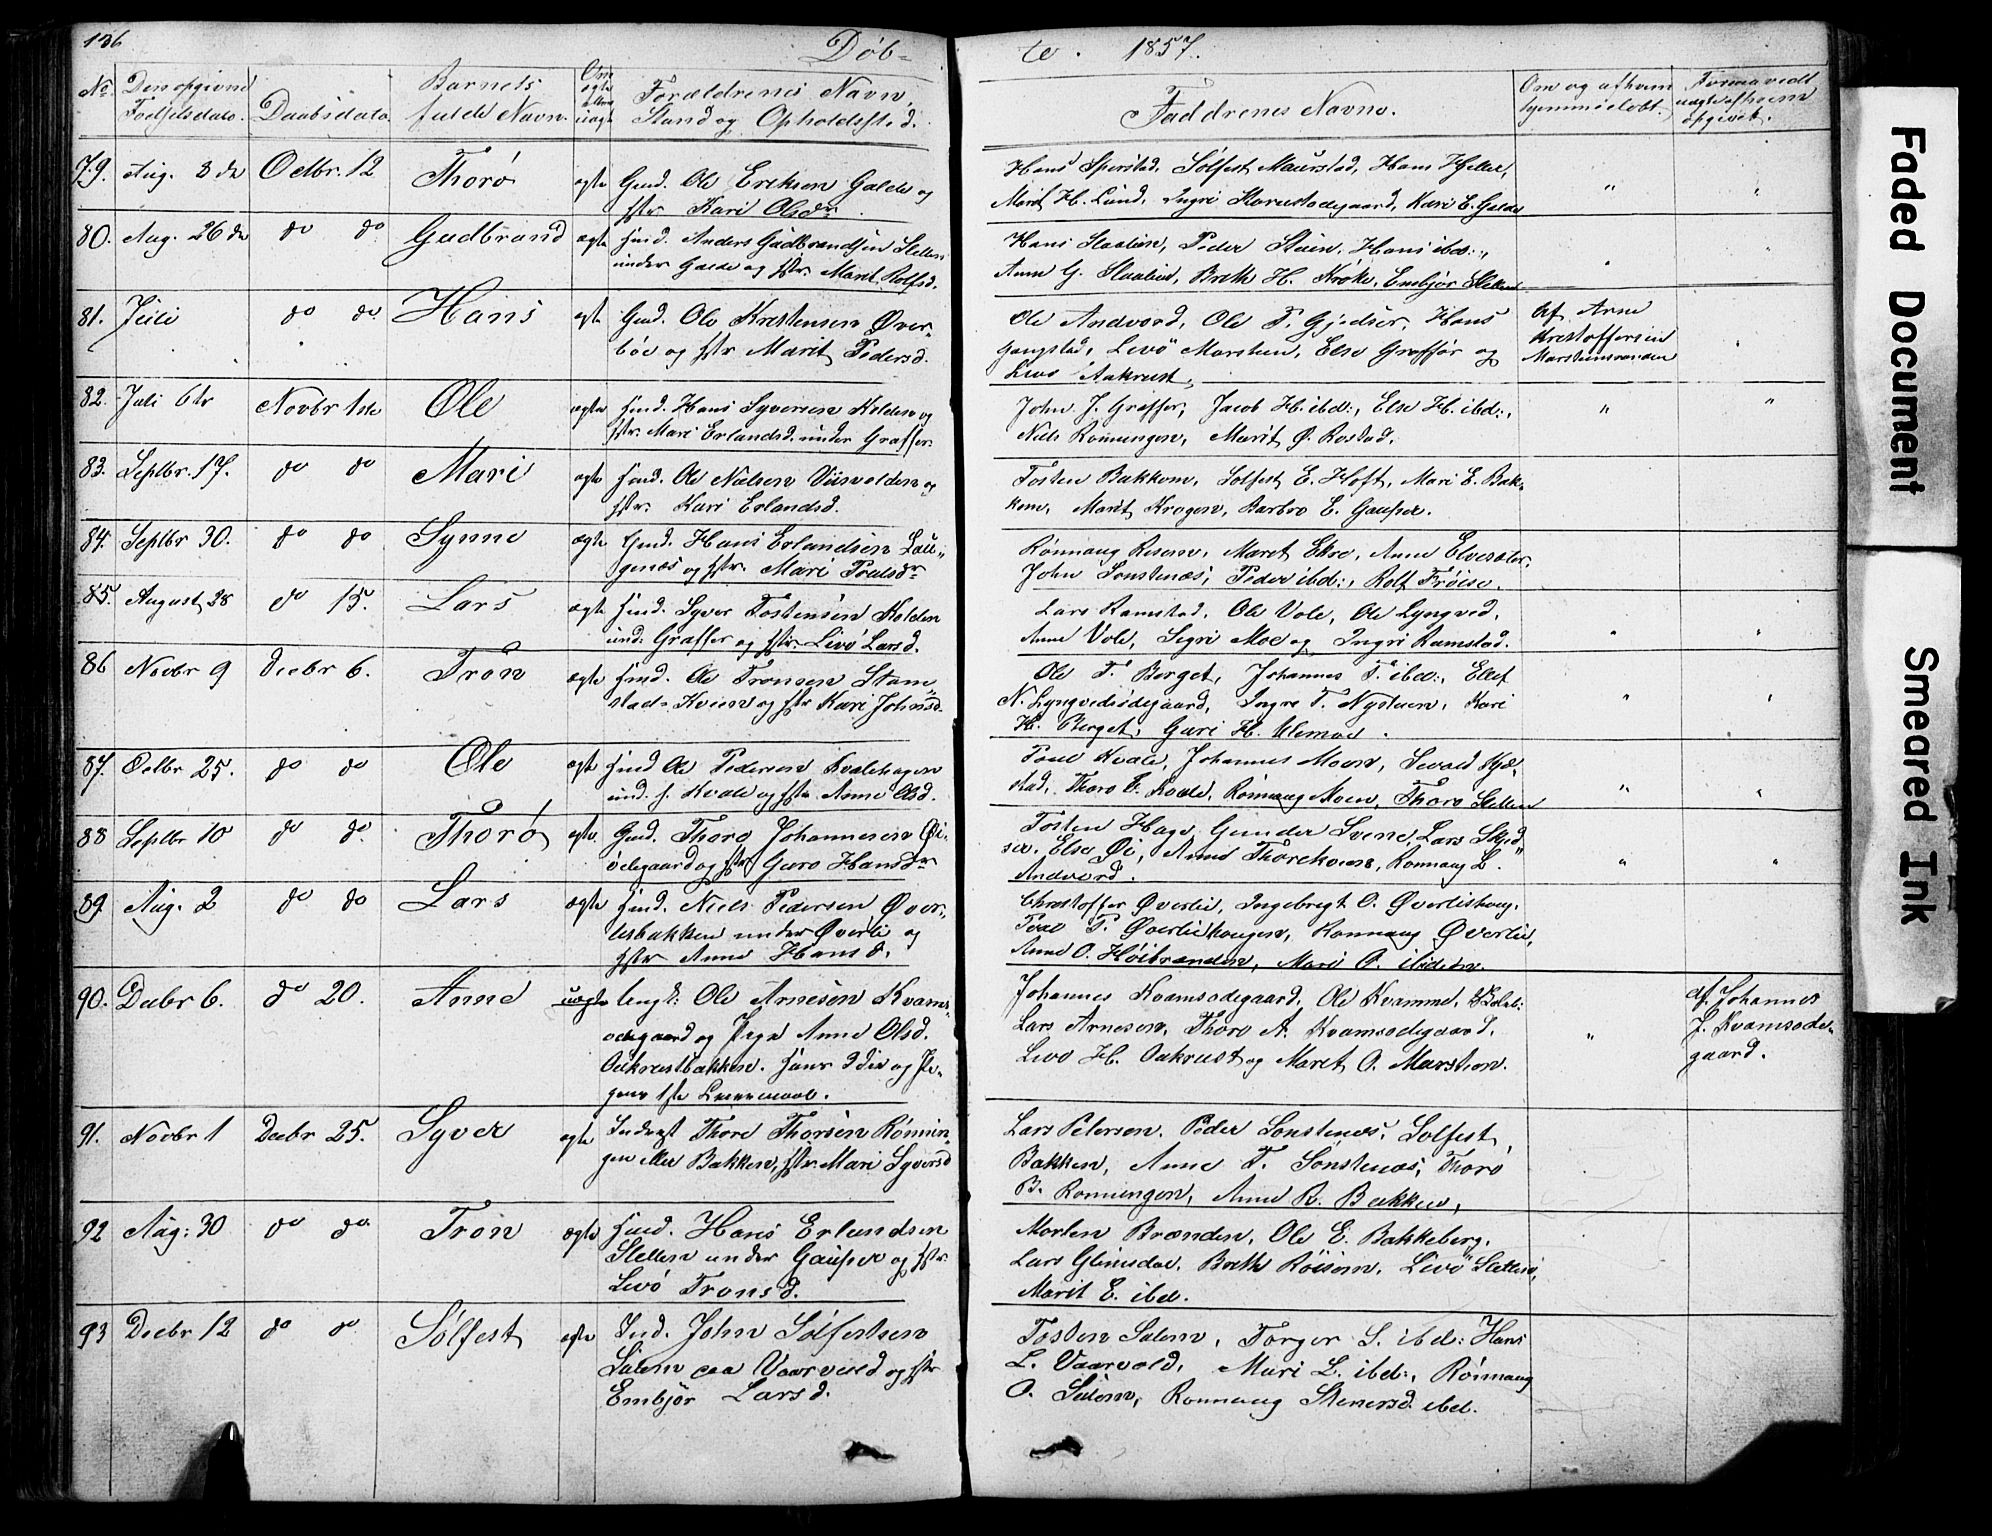 136
Døb-
te. 1857.
No
Den opgivne
Fødselsdato.
Daabsdato.
Barnets
fulde Navn.
Om
ægte
eller
uægte
Forældrenes Navn,
Stand og Opholdsted.
Faddrenes Navne.
Om og af hvem
hjemmedøbt.
79. Aug. 8de Octbr. 12 Thorø ægte Gmd. Ole Eriksen Galde og
Hstr Kari Olsdr.
Hans Sperstad, Solfest Maurstad, Hans Hjelle,
Marit H. Lund, Ingri Storustødegaard, Kari E. Galde
80. Aug. 26de do do Gudbrand ægte Hmd. Anders Gudbrandsen Sletten
under Galde og Hstr. Marit Rolfsd.
Hans Slaalien, Peder Stuen, Hans ibd.,
Anne G. Slaalien, Breth H. Kroke, Embjør Sletten
81. Juli do do Hans ægte Gmd. Ole Kristensen Øver-
bøe og Hstr Marit Pedersd.
Ole Andvord, Ole P. Gjeilser, Hans
Gangstad, Livø Marsteen, Else Graffer og
Livø Aakrust.
Af Arne
Kristoffersen
Marsteinsranden
82. Juli 6te Novbr 1ste Ole ægte Hmd. Hans Syversen Kolden og
Hstr. Mari Erlandsd. under Graffer.
John J. Graffer, Jacob H. ibd:, Else H. ibd:,
Niels Rønningen, Marit Ø. Rostad.
83. Septbr. 17. do do Mari ægte Hmd. Ole Nielsen Viisvolden og
Hstr. Kari Erlandsd.
Tosten Bakkom, Solfest E. Hoft, Mari E. Bak-
kem, Marit Krogen, Barbro E. Gauper.
84. Septbr 30. do do Synne ægte Gmd. Hans Erlandsen Lau-
genæs og Hstr. Mari Poulsdr
Rønnaug Risem, Maret Ekre, Anne Elvesæter,
John Sønstenæs, Peder ibd:, Rolf Frøise.
85. August 28 do 15. Lars ægte Hmd. Syver Tostensen Kolden
und: Graffer og Hstr. Livø Larsd.
Lars Ramstad, Ole Vole, Ole Lyngved,
Anne Vole, Segri Moe og Ingri Ramstad.
86 Novbr 9 Decbr 6. Tron ægte Hmd. Ole Tronsen Stam-
stad-Kvien og Hstr Kari Johnsd.
Ole T. Berget, Johannes T. ibd:, Ellef
N. Lyngvedsødegaard, Ingre T. Nystuen, Kari
H. Berget, Guri H. Ulemoe.
87. Octbr 25. do do Ole ægte Hmd Ole Pedersen Kvalehagen
und. f. Kvale og Hstr. Anne Olsd.
Poul Kvale, Johannes Moen, Sevald Kjæ-
stad, Thoro E. Kvale, Rønnaug Moen, Thoro Sletten
88 Septbr 10 do do Thorø ægte Gmd. Thore Johannesen Øi-
ødegaard og Hstr Guro Hansdr
Tosten Hage, Gunder Svene, Lars Skjed-
ser, Else Øi, Anne Thorekvern, Rønnaug L.
Andvord.
89. Aug. 2 do do Lars ægte Hmd. Niels Pedersen Øver-
liesbakken under Øverlie og
Hstr Anne Hansd.
Christoffer Øverlie, Ingebregt O. Øverlishoug,
Poul P. Øverliehougen, Rønnaug Øverlie,
Anne O. Høibranden, Mari O. ibidem.
90. Decbr 6. do 20. Anne uægte Ungk: Ole Arnesen Kvams-
ødegaard og Pige Anne Olsd.
Aakrustbakken. Hans 2den og Pi-
gens 1ste Leiermaal.
Johannes Kvamsødegaard, Ole Kvamme,
Lars Arnesen, Thoro A. Kvamsødegaard,
Livø H. Aakrust og Maret O. Marstein.
af Johannes
J. Kvamsøde-
gaard.
91. Novbr 1 Decbr 25. Syver ægte Inderst Thore Thorsen Rønnin-
gen eller Bakken, Hstr. Mari Syversd
Lars Petersen, Peder Sønstenæs, Solfest
Bakken, Anne T. Sønstenæs, Thorø
B. Rønningen, Anne R. Bakken,
92 Aug: 30 do do Tron ægte Hmd. Hans Erlandsen
Sletten under Gauper og Hstr.
Livø Tronsd.
Morten Brænden, Ole E. Bakkeberg,
Lars Glimsdal, Breth Røisem, Livø Sletten,
Marit E. ibd.
93 Decbr 12 do do Sølfest ægte Ind. John Sølfestsen
Sulem paa Vaarvold og Hstr
Embjør Larsd.
Tosten Sulem, Torger S. ibd: Hans
L. Vaarvold, Mari L. ibd:, Rønnaug
O. Sulem, Rønnaug Stenersd. ibd.
Faded Document
Smeared Ink